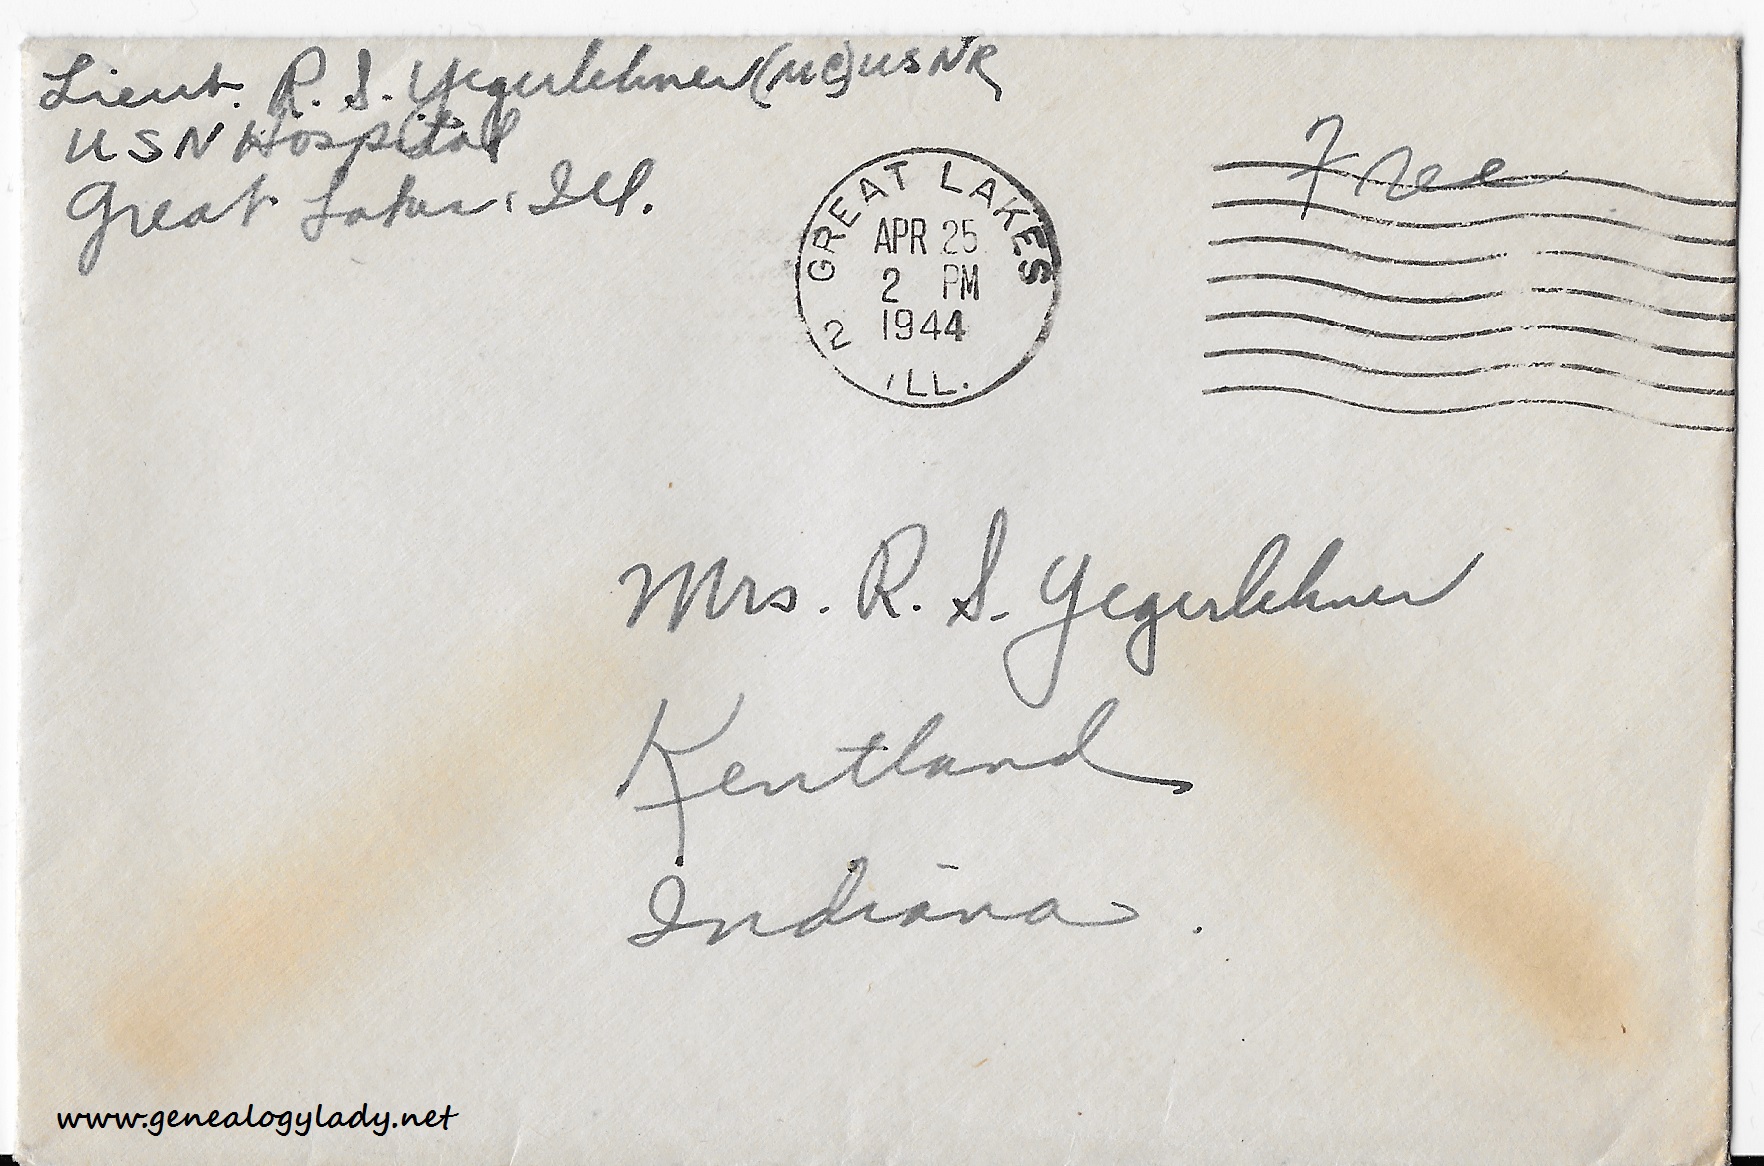 Lieut. R. S. Yegerlehner (MC) USNR
USN Hospital
Great Lakes, Ill.
Free
GREAT LAKES
APR 25
2 PM
1944
2
ILL.
Mrs. R. S. Yegerlehner
Kentland
Indiana.
www.genealogylady.net